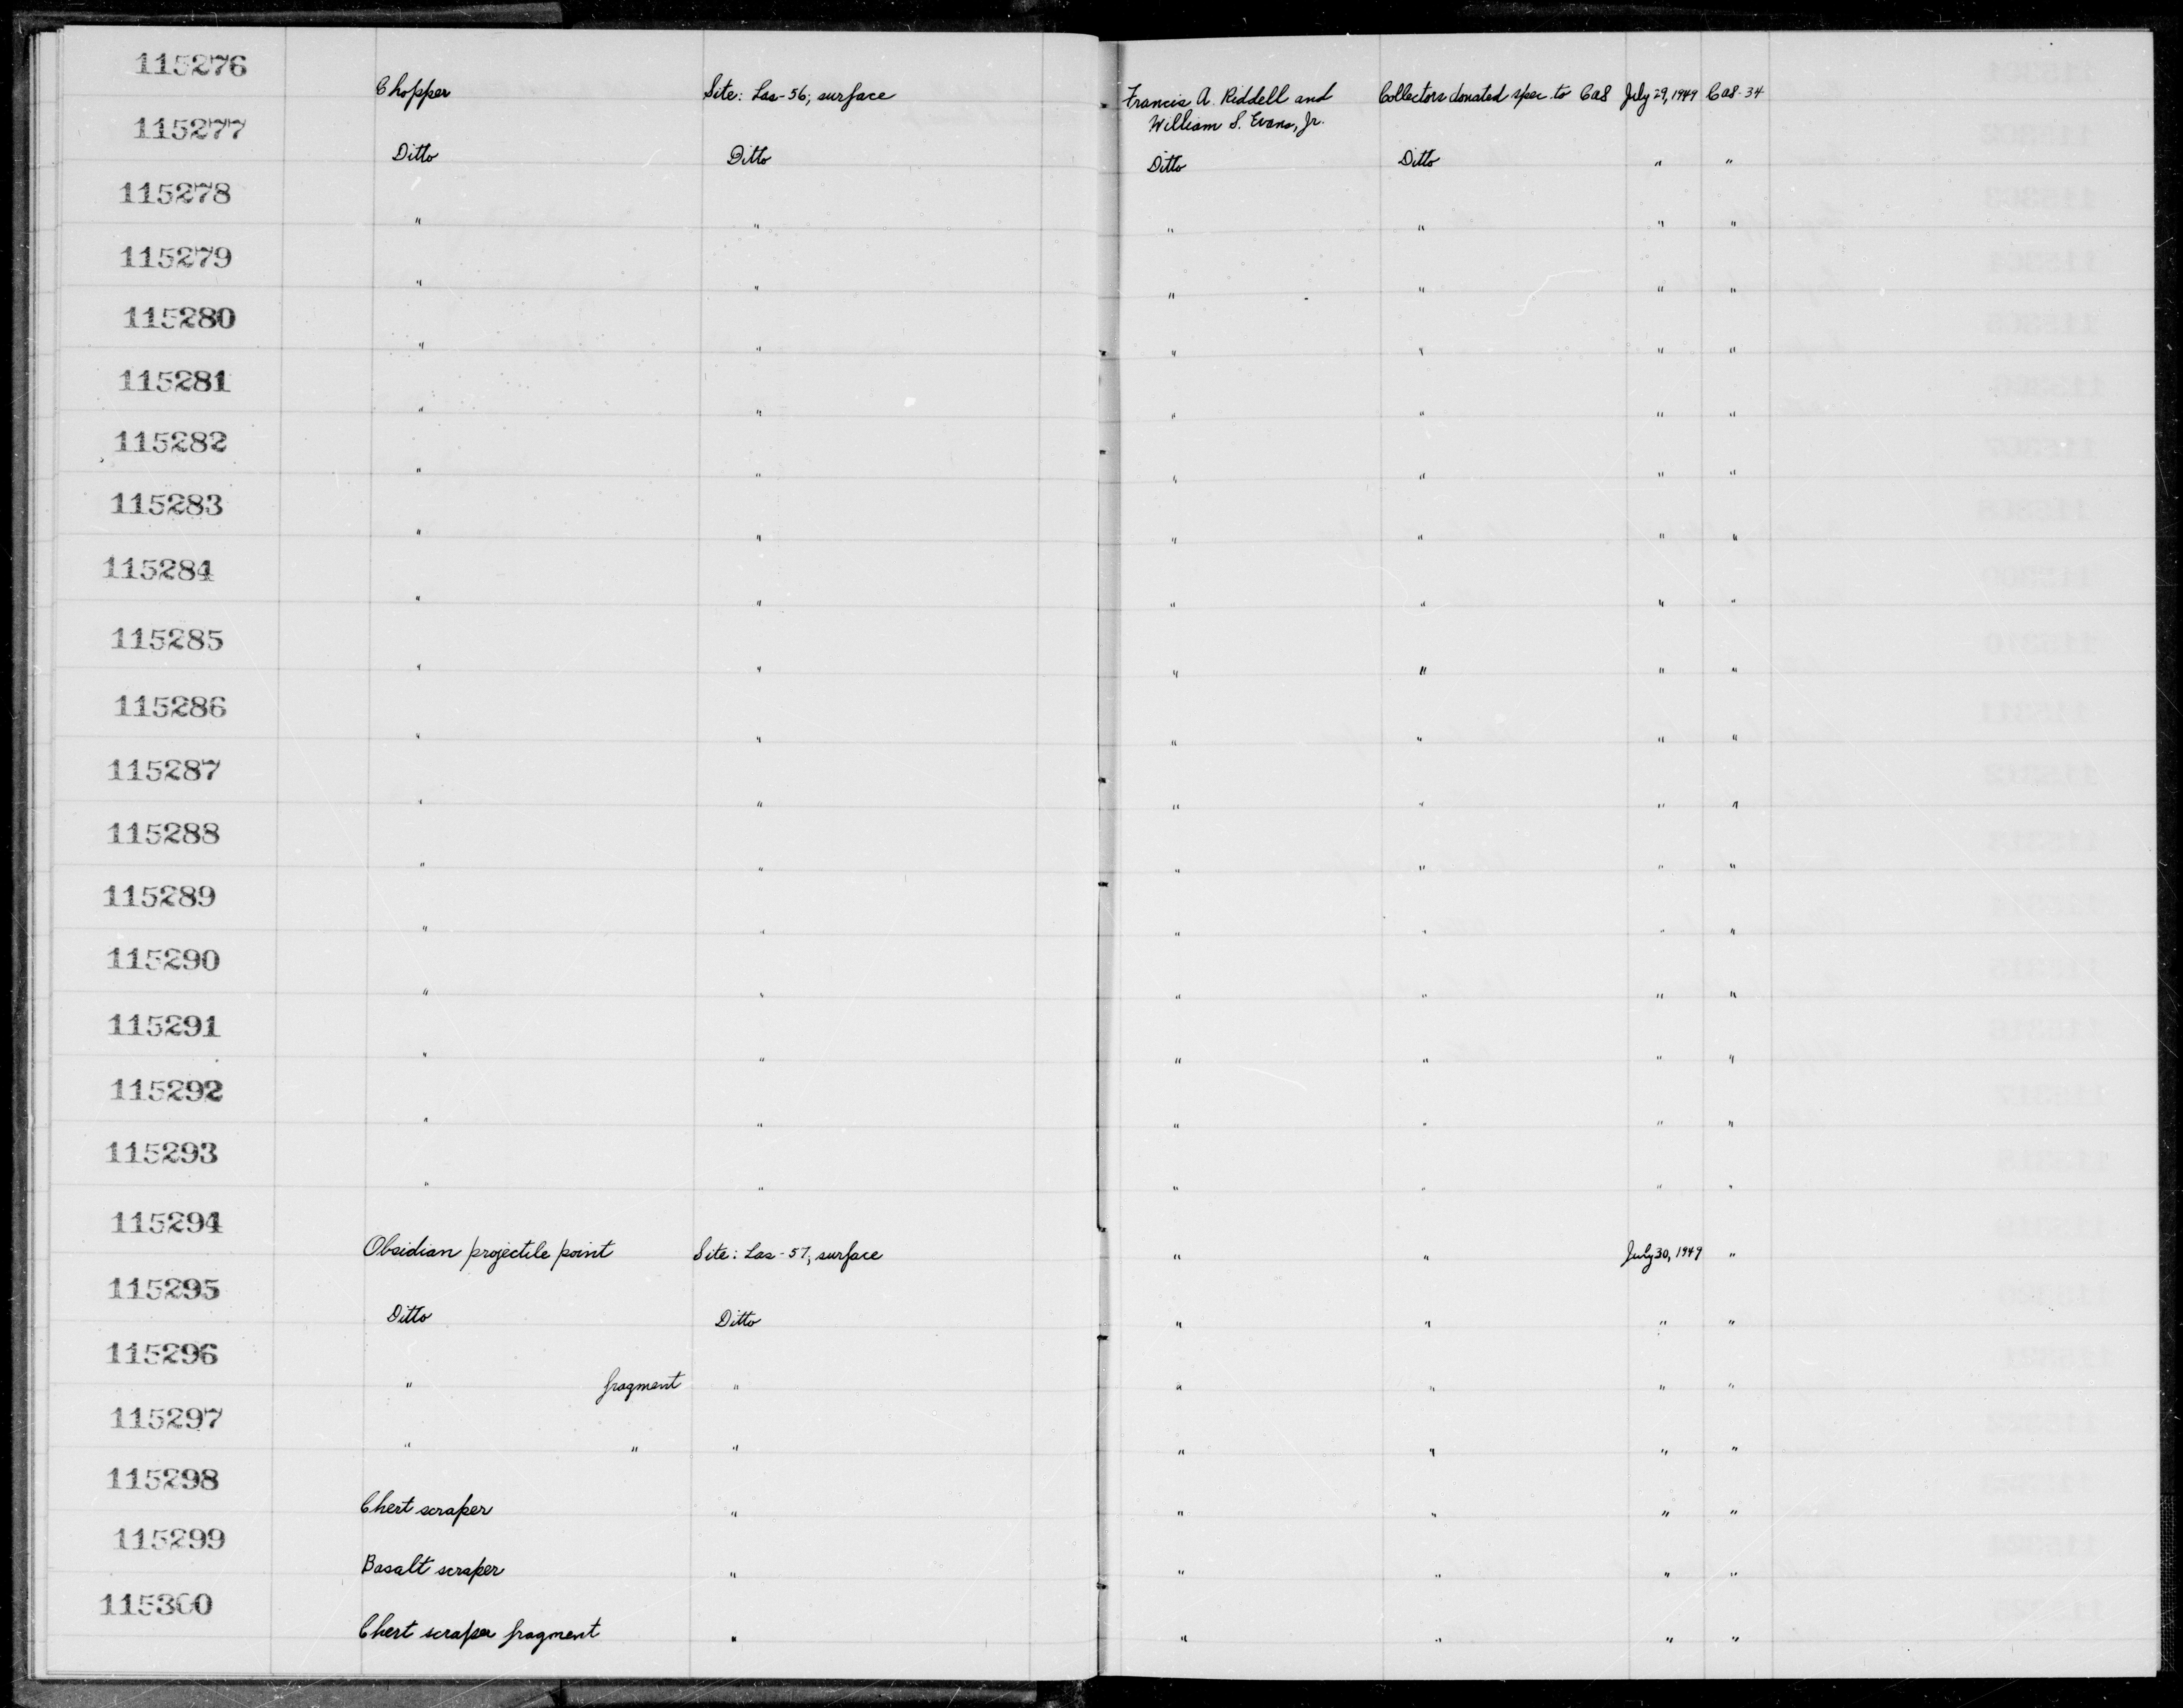 115276
Chopper Site: Las-56; surface Francis A. Riddell and Collectors donated spec. to CAS July 29, 1949 CAS-34
William S. Evans, Jr.
115277
Ditto Ditto Ditto Ditto " "
115278
" " " " " "
115279
" " " " " "
115280
" " " " " "
115281
" " " " " "
115282
" " " " " "
115283
" " " " " "
115284
" " " " " "
115285
" " " " " "
115286
" " " " " "
115287
" " " " " "
115288
" " " " " "
115289
" " " " " "
115290
" " " " " "
115291
" " " " " "
115292
" " " " " "
115293
" " " " " "
115294
Obsidian projectile point Site: Las-57; surface " " July 30, 1949 "
115295
Ditto Ditto " " " "
115296
" fragment " " " " "
115297
" " " " " " "
115298
Chert scraper " " " " "
115299
Basalt scraper " " " " "
115300
Chert scraper fragment " " " " "